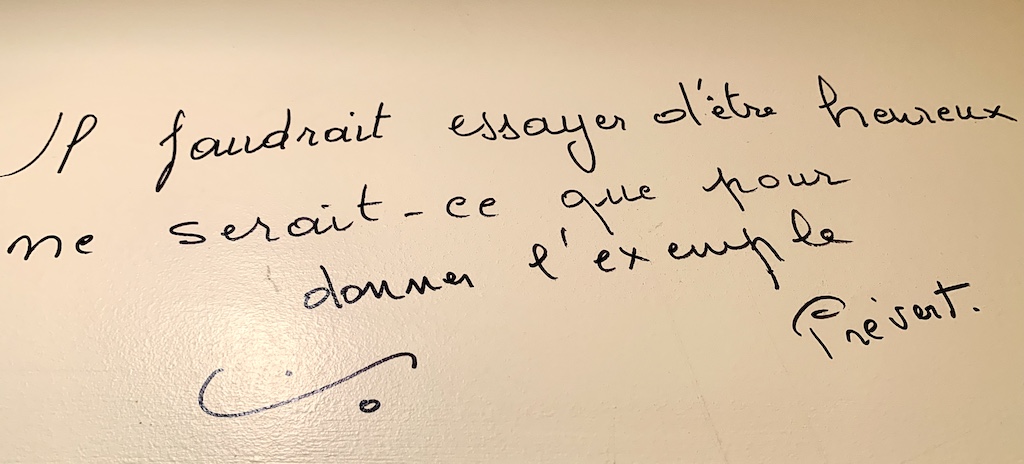 Il faudrait essayer d'être heureux
ne serait-ce que pour
donner l'exemple
Prévert.